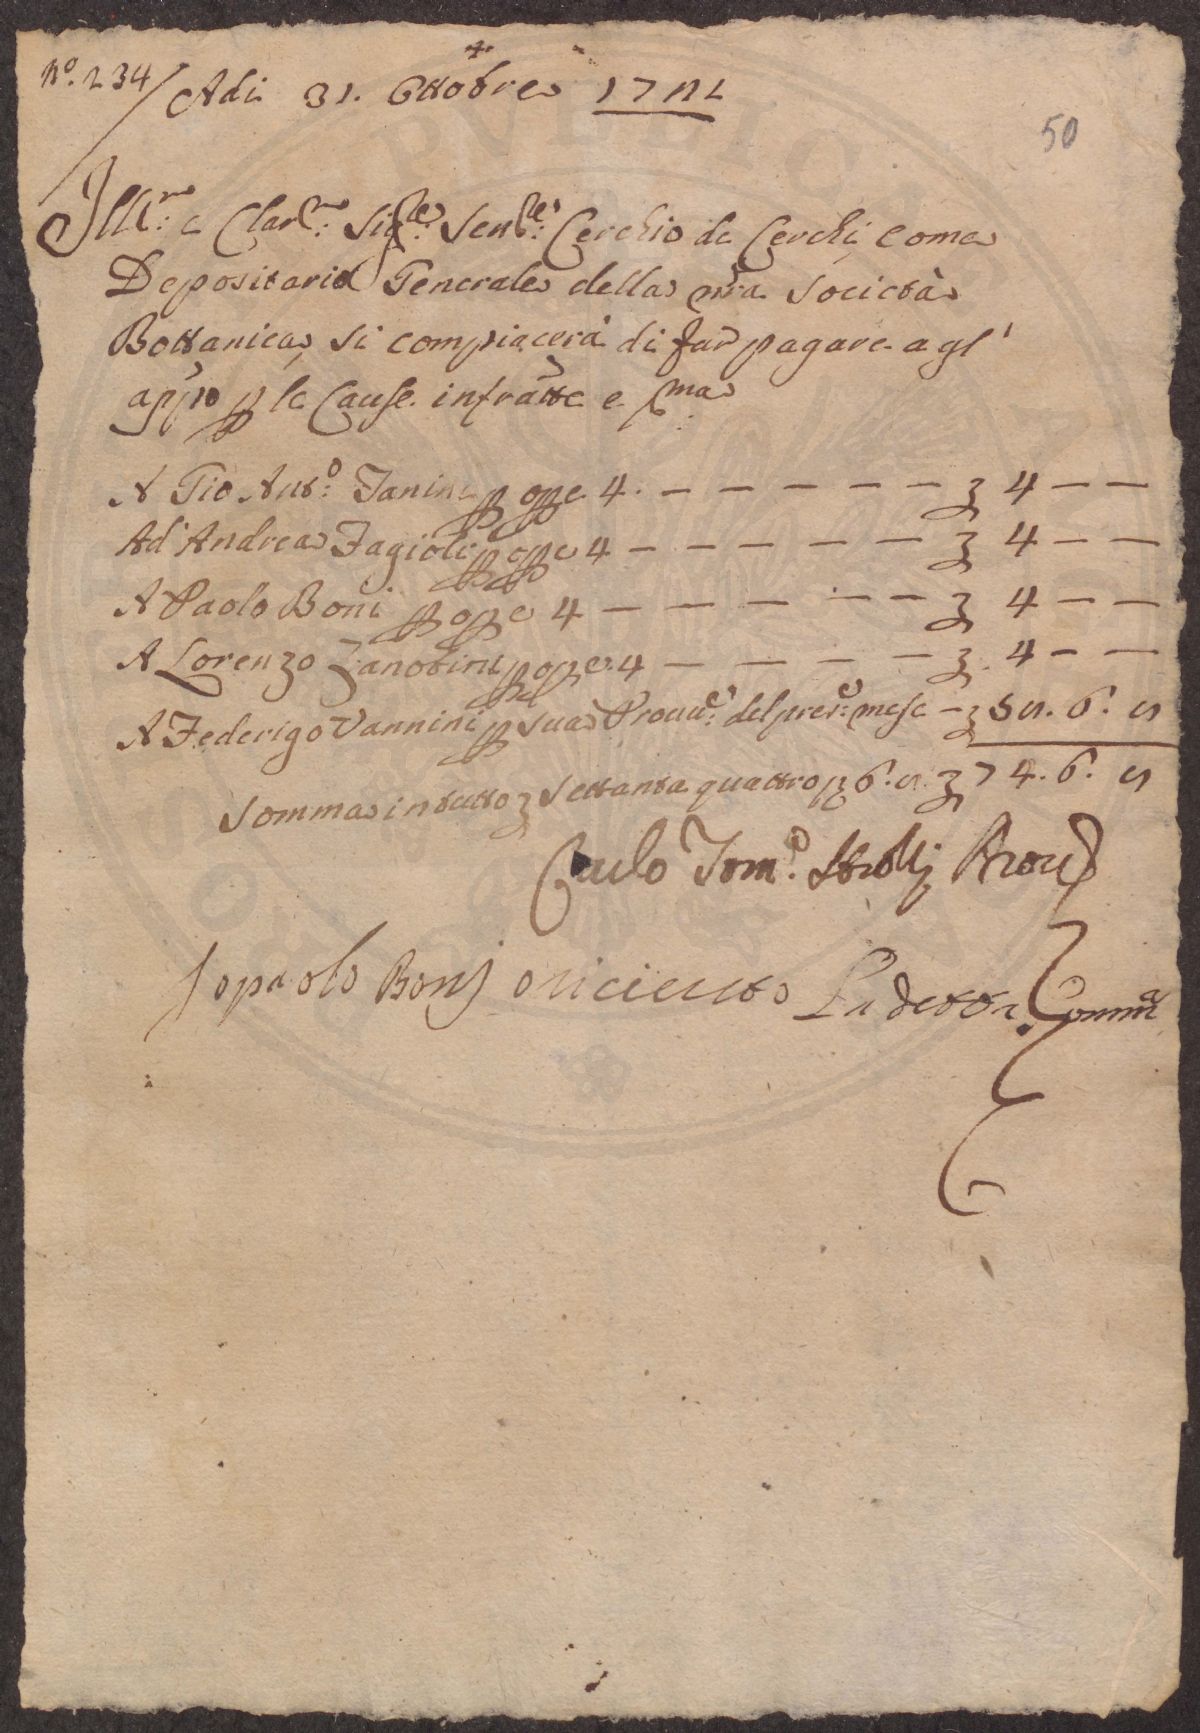 N.º 234
Adi 31. Ottobre
50
Ill.mo e Clar.mo Sig.re Sen.re Cerchio de Cerchi, come
Depositario Generale della nra Società
Bottanica, si compiacerà di far pagare agl'
app.o p le Cause infratte e p.ma
A Gio Ant.o Fanini p ope 4. — — — — — — 4 — —
Ad' Andrea Fagioli p ope 4 — — — — — — 4 — —
A Paolo Boni p ope 4 — — — — — — 4 — —
A Lorenzo Zanobini p ope 4 — — — — — 4 — —
A Federigo Vannini p sua Prouu.e del pres.e mese — 58. 6. 8
Somma in tutto settanta quattro 6. 8. 74. 6. 8
Carlo Tom.o Strozzi Prou.re
Io paolo Bonj o riceuuto La detta Somma